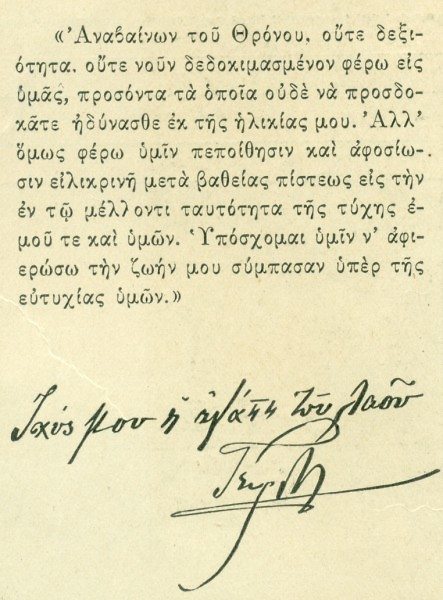 «Ἀναβαίνων τοῦ Θρόνου. οὔτε δεξι-
ότητα. οὔτε νοῦν δεδοκιμασμένον φέρω εἰς
ὑμᾶς, προσόντα τὰ ὁποῖα οὐδὲ νὰ προσδο-
κᾶτε ἠδύνασθε ἐκ τῆς ἡλικίας μου. Ἀλλ'
ὅμως φέρω ὑμῖν πεποίθησιν καὶ ἀφοσίω-
σιν εἰλικρινῆ μετὰ βαθείας πίστεως εἰς τὴν
ἐν τῷ μέλλοντι ταυτότητα τῆς τύχης ἐ-
μοῦ τε καὶ ὑμῶν. Ὑπόσχομαι ὑμῖν ν' ἀφι-
ερώσω τὴν ζωήν μου σύμπασαν ὑπὲρ τῆς
εὐτυχίας ὑμῶν.»
Ἰσχύς μου ἡ ἀγάπη τοῦ λαοῦ